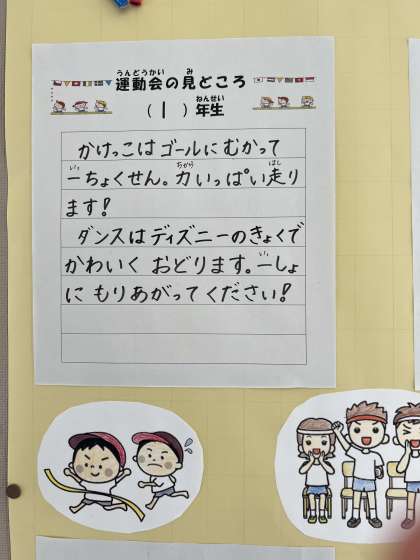 うんどうかい み
運動会の見どころ
ねんせい
(1)年生
かけっこはゴールにむかって
いっ ちから はし
一ちょくせん。力いっぱい走り
ます!
ダンスはディズニーのきょくで
いっ
かわいく おどります。一しょ
に もりあがってください!